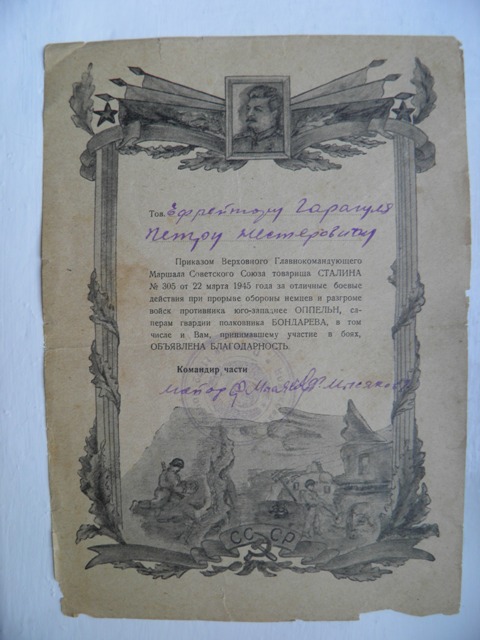 Тов. Ефрейтору Гарагуля
Петру Нестеровичу
Приказом Верховного Главнокомандующего
Маршала Советского Союза товарища СТАЛИНА
№ 305 от 22 марта 1945 года за отличные боевые
действия при прорыве обороны немцев и разгроме
войск противника юго-западнее ОППЕЛЬН, са-
перам гвардии полковника БОНДАРЕВА, в том
числе и Вам, принимавшему участие в боях,
ОБЪЯВЛЕНА БЛАГОДАРНОСТЬ.
Командир части
майор
СССР